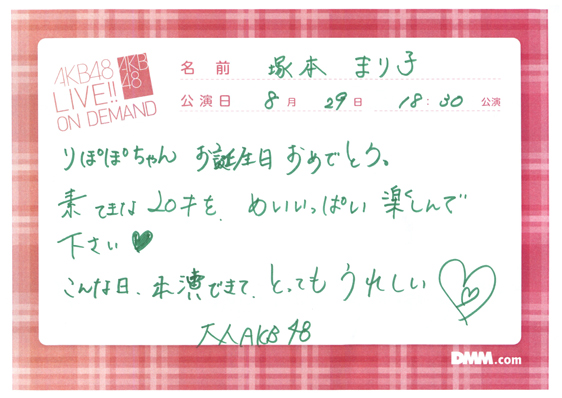 AKB48
LIVE!!
ON DEMAND
AKB
48
名前 塚本 まり子
公演日 8月 29日 18:30 公演
りぽぽちゃん お誕生日おめでとう。
素てきな 20才を、めいいっぱい 楽しんで
下さい♥
こんな日、出演できて、とってもうれしい♡
大人AKB48
DMM.com